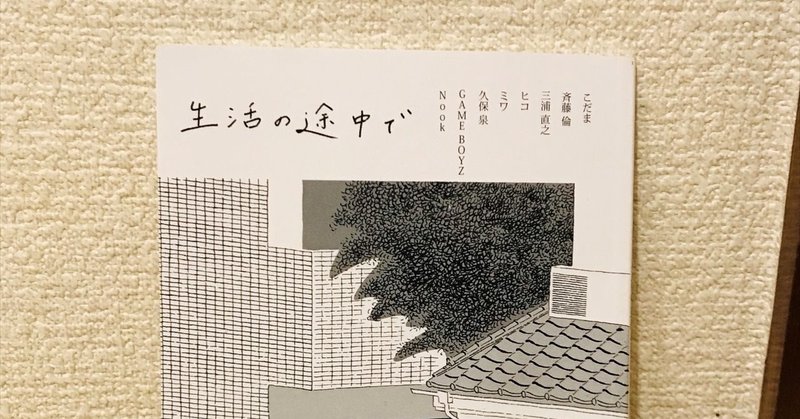 生活の途中で
こだま
斉藤 倫
三浦 直之
ヒコ
ミワ
久保 泉
GAME BOYZ
Nook